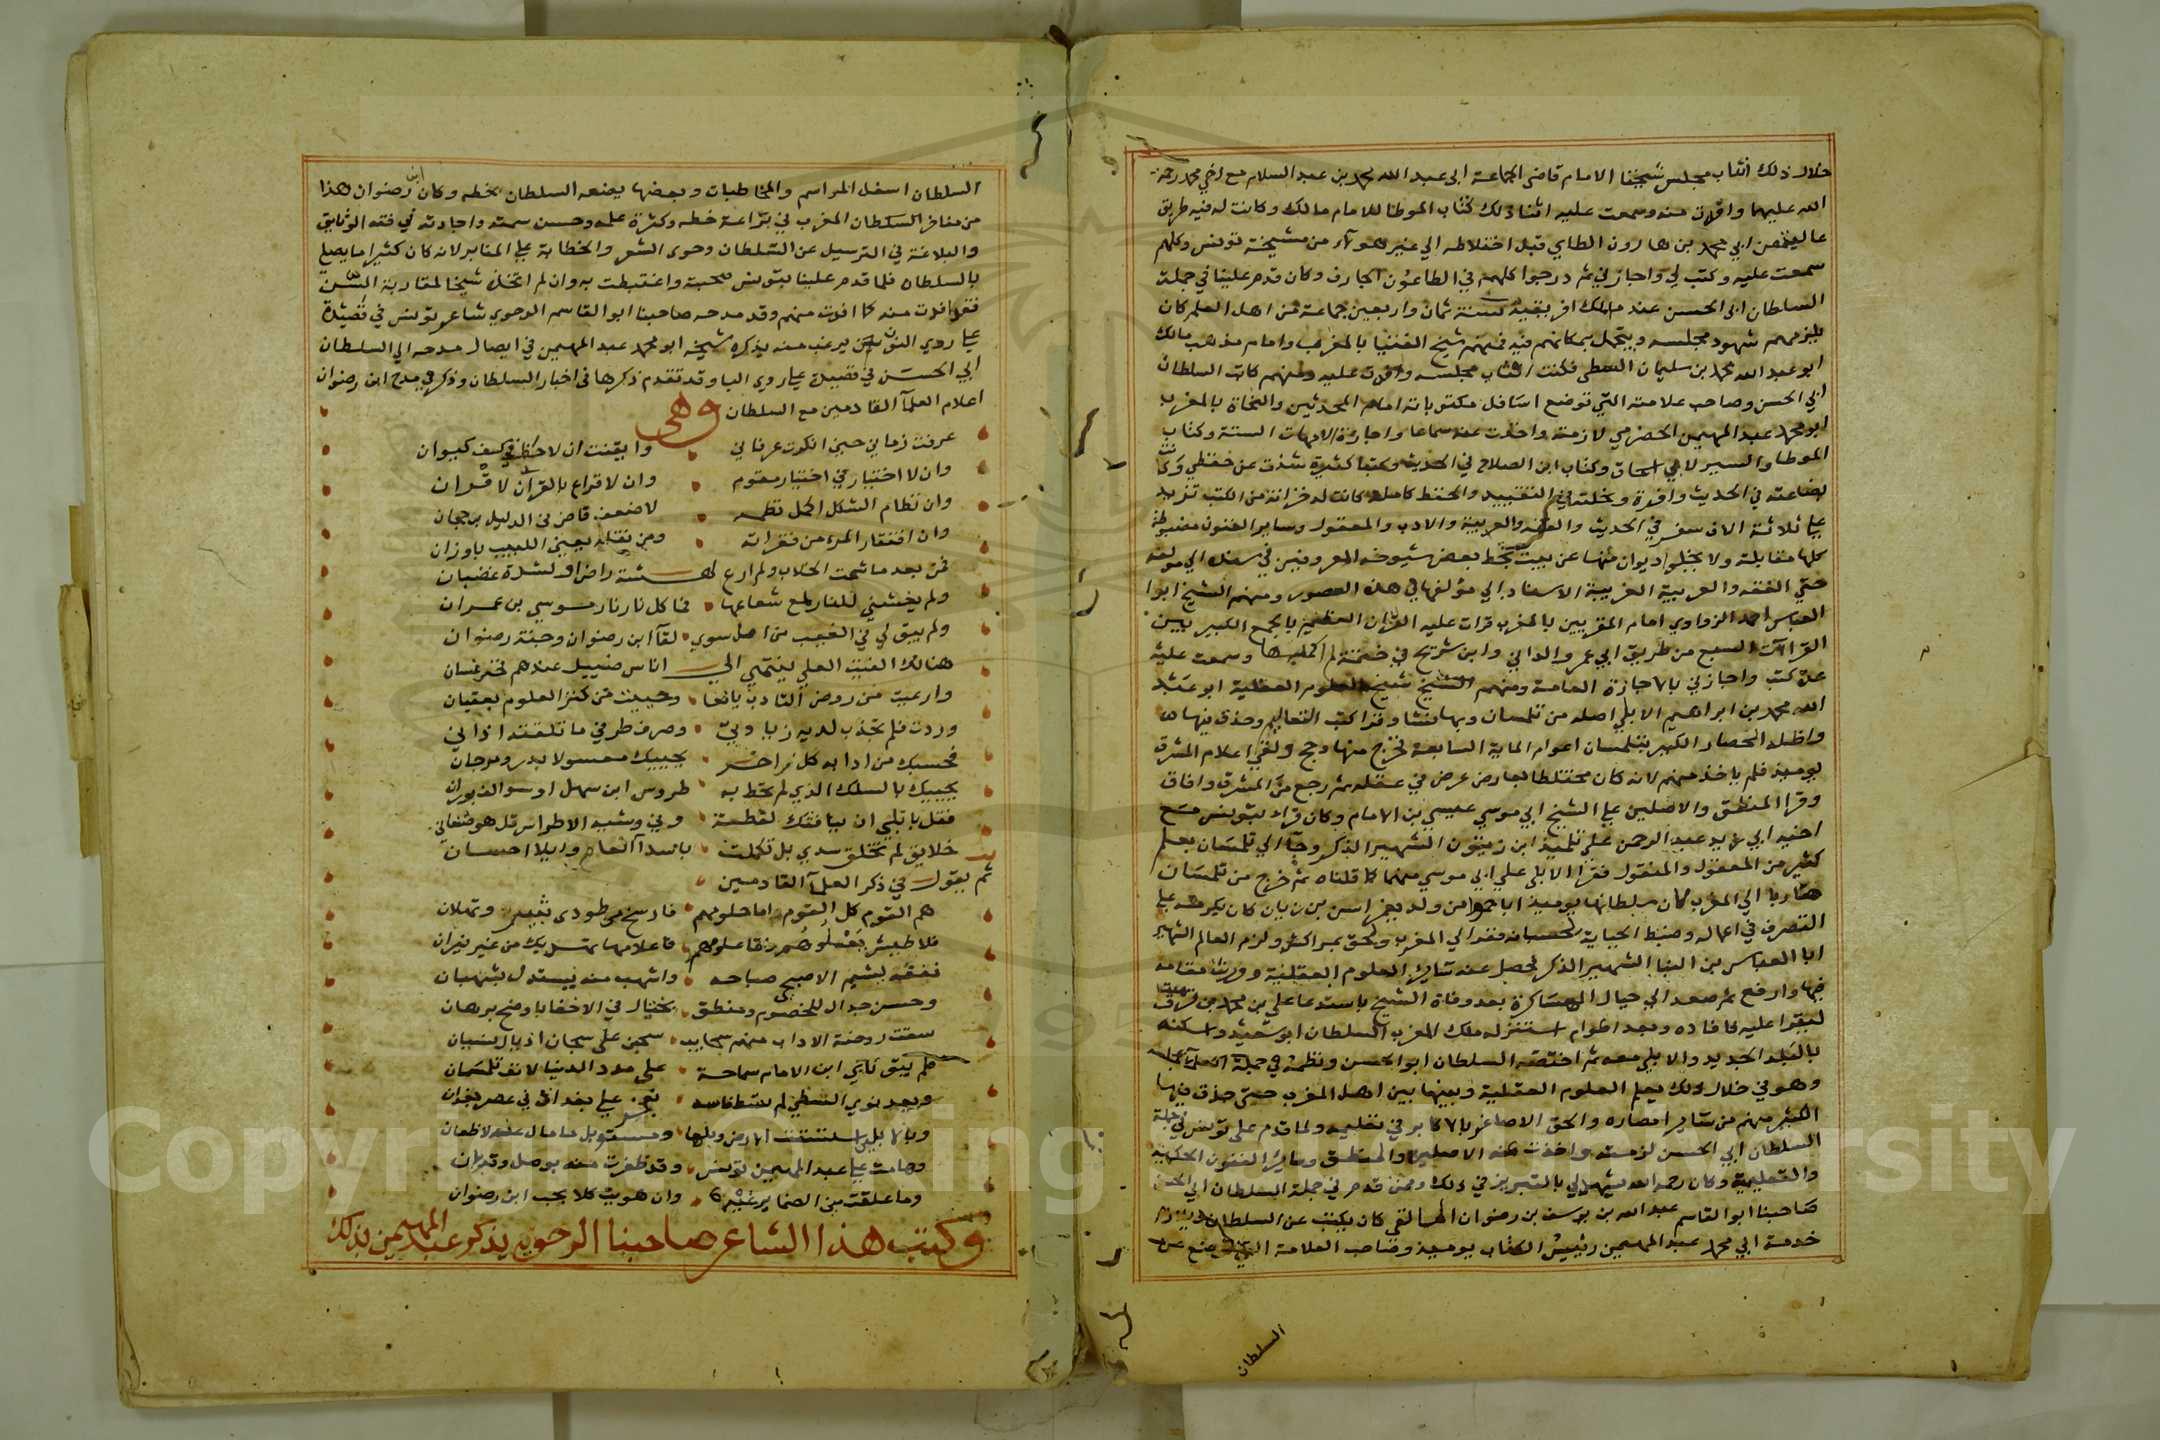 خلال ذلك انتاب مجلس شيخنا الامام قاضى الجماعة ابى عبد الله محمد بن عبد السلام مع اخي محمد رحمة
الله عليهما وافدت منه وسمعت عليه اثنا ذلك كتاب الموطا للامام مالك وكانت له فيه طريق
عالية عن ابي محمد بن هارون الطاي قبل اختلاطه الي غير هولاء من مشيخة تونس وكلهم
سمعت عليه وكتب لي واجازني ثم درجوا كلهم في الطاعون الجارف وكان قدم علينا في جملة
السلطان ابى الحسن عندما ملك افريقية سنة ثمان واربعين جماعة من اهل العلم كان
يلزمهم شهود مجلسه ويتجمل بمكانهم فيه فمنهم شيخ الفتيا بالمغرب وامام مذهب مالك
ابو عبد الله محمد بن سليمان السطى فكنت انتاب مجلسه وافدت عليه ومنهم كاتب السلطان
ابي الحسن وصاحب علامته التي توضع اسافل مكتوباته امام المحدثين والنحاة بالمغرب
ابو محمد عبد المهيمن الحضرمي لازمته واخذت عنه سماعا واجازة الامهات الستة وكتاب
الموطا والسير لابي اسحاق وكتاب ابن الصلاح في الحديث وكتبا كثيرة شذت عن حفظي وكانت
بضاعته في الحديث وافرة ونحلته في التقييد والحفظ كاملة كانت له خزانة من الكتب تزيد
على ثلاثة الاف سفر في الحديث والفقه والعربية والادب والمعقول وساير الفنون مضبوطة
كلها مقابلة ولا يخلو ديوان منها عن بيت بخط بعض شيوخه المعروفين في سنده الي مولفه
حتي الفقه والعربية الغريبة الاسناد الي مؤلفها في هذه العصور ومنهم الشيخ ابوا
العباس احمد الزواوي امام المقريين بالمغرب قرات عليه القران العظيم بالجمع الكبير بين
القراات السبع من طريق ابي عمرو الداني وابن شريح في ختمة لم اكملها وسمعت عليه
عدة كتب واجازني بالاجازة العامة ومنهم الشيخ شيخ العلوم العقلية ابو عبد
الله محمد بن ابراهيم الابلي اصله من تلمسان وبها نشا وقرا كتب التعاليم وحذق فيها
واظله الحصار الكبير بتلمسان اعوام الماية السابعة فخرج منها وحج ولقي اعلام المشرق
يوميذ فلم ياخذ عنهم لانه كان مختلطا بعارض عرض في عقله ثم رجع من المشرق وافاق
وقرا المنطق والاصلين علي الشيخ ابي موسي عيسي بن الامام وكان قرا بتونس مع
اخيه ابي زيد عبد الرحمن علي تلميذ ابن زيتون الشهير الذكر وجا الي تلمسان بعلم
كثير من المعقول والمنقول فقرا الابلي علي ابي موسي منهما كما قلناه ثم خرج من تلمسان
هاربا الي المغرب لان سلطانها يوميذ ابا حموا من ولد يغمراسن بن زيان كان يكرهه علي
التصرف في اعماله وضبط الجباية لحسبانه ففر الي المغرب ولحق بمراكش ولزم العالم الشهير
ابا العباس بن البنا الشهير الذكر فحصل عنه ساير العلوم العقلية وورث مقامه
فيها وارفع ثم صعد الي جبال الهساكرة بعد وفاة الشيخ باستدعا علي بن محمد بن تروميت
ليقرا عليه فافاده وبعد اعوام استنزله ملك المغرب السلطان ابو سعيد واسكنه
بالبلد الجديد والابلي معه ثم اختصه السلطان ابو الحسن ونظمه في جملة العلما بمجلسه
وهو في خلال ذلك يعلم العلوم العقلية ويبثها بين اهل المغرب حتى حذق فيها
الكثير منهم من ساير امصاره والحق الاصاغر بالاكابر في تعليمه ولما قدم على تونس في جملة
السلطان ابي الحسن لزمته واخذت عنه الاصلين والمنطق وساير الفنون الحكمية
والتعليمية وكان رحمه الله يشهد لي بالتبريز في ذلك وممن قدم في جملة السلطان ابي الحسن
صاحبنا ابو القاسم عبد الله بن يوسف بن رضوان المالقي كان يكتب عن السلطان ويلزم
خدمة ابي محمد عبد المهيمن رئيس الكتاب يوميذ وصاحب العلامة التي توضع عن
السلطان
السلطان اسفل المراسم والمخاطبات وبعضها يضعه السلطان بخطه وكان ابن رضوان هذا
من مفاخر السلطان المغرب في براعة خطه وكثرة علمه وحسن سمته واجادته في فقه الوثايق
والبلاغة في الترسيل عن السلطان وحوى الشعر والخطابة علي المنابر لانه كان كثيرا ما يصلي
بالسلطان فلما قدم علينا بتونس صحبته واغتبطت به وان لم اتخذه شيخا لمقاربة السن
فقد افدت منه كما افدت منهم وقد مدحه صاحبنا ابو القاسم الرحوي شاعر تونس في قصيدة
علي روي النون يرغب منه يذكره شيخه ابو محمد عبد المهيمن في ايصال مدحه الي السلطان
ابي الحسن في قصيدة علي روى البا وقد تقدم ذكرها في اخبار السلطان وذكر في مدح ابن رضوان
اعلام العلما القادمين مع السلطان وهى
عرفت زماني حين انكرت عرفاني وايقنت ان لا حظ في كف كيوان
وان لا اختيار في اختيار مقوم وان لا قراع بالقران لاقران
وان نظام الشكل اكمل نظمه لاضعف قاض في الدليل برجحان
وان افتقار المرء من فقراته ومن ثقله يغني اللبيب باوزان
فمن بعد ما شمت الخلاب ولم ارع لهشة راض او لشرة غضبان
ولم يخشني للنار لمع شعاعها فما كل نار نار موسي بن عمران
ولم يبق لي في الغيب من امل سوي لقا ابن رضوان وجنة رضوان
هنالك الفيت العلي ينتمي الي اناس ضييل عندهم فخر غسان
وارعيت من روض التادب يانعا وحييت من كنز العلوم بعقيان
وردت فلم تجدب لديه ريادتي وصرف طرفي ما تلفته اذاني
فحسبك من ادابه كل زاخر يحييك معسولا بدر ومرجان
يحييك بالسلك الذي لم تحط به طروس ابن سهل او سوالف بوران
فقل بابلي ان ينافثك لفظه وفي وشيه الاطراس قل هو صنعاني
خلايق لم تخلق سدي بل تكملت باسدا انعام وايلا احسان
ثم يقول في ذكر العلما القادمين
هم القوم كل القوم اما حلومهم فارسخ من طودى ثبير وثهلان
فلا طيش يعلوهم واما علومهم فاعلامها تهديك من غير نيران
بفقه يشيم الاصبحي صباحه واشهب منه يستدل بشهبان
وحسن جدال للخصوم ومنطق يختال في الاخفا باوضح برهان
سقت روضة الاداب منهم سحايب سحبن على سحبان اذيال نسيان
فلم يبق ناي ابن الامام سماحة على مدد الدنيا لانف تلمسان
وبعد نوي السطي لم تسط فاسه بفخر علي بغداد في عصر بغدان
وبالابلي استسقت الارض وبلها ومستوبل ما مال عنه لاظعان
وهامت علي عبد المهيمن تونس وقد ظفرت منه بوصل وقربان
وما علقت مني الضماير غيره وان هويت كلا بحب ابن رضوان
وكتب هذا الشاعر صاحبنا الرحوي يذكر عبد المهيمن بذلك
Copyright © King Saud University